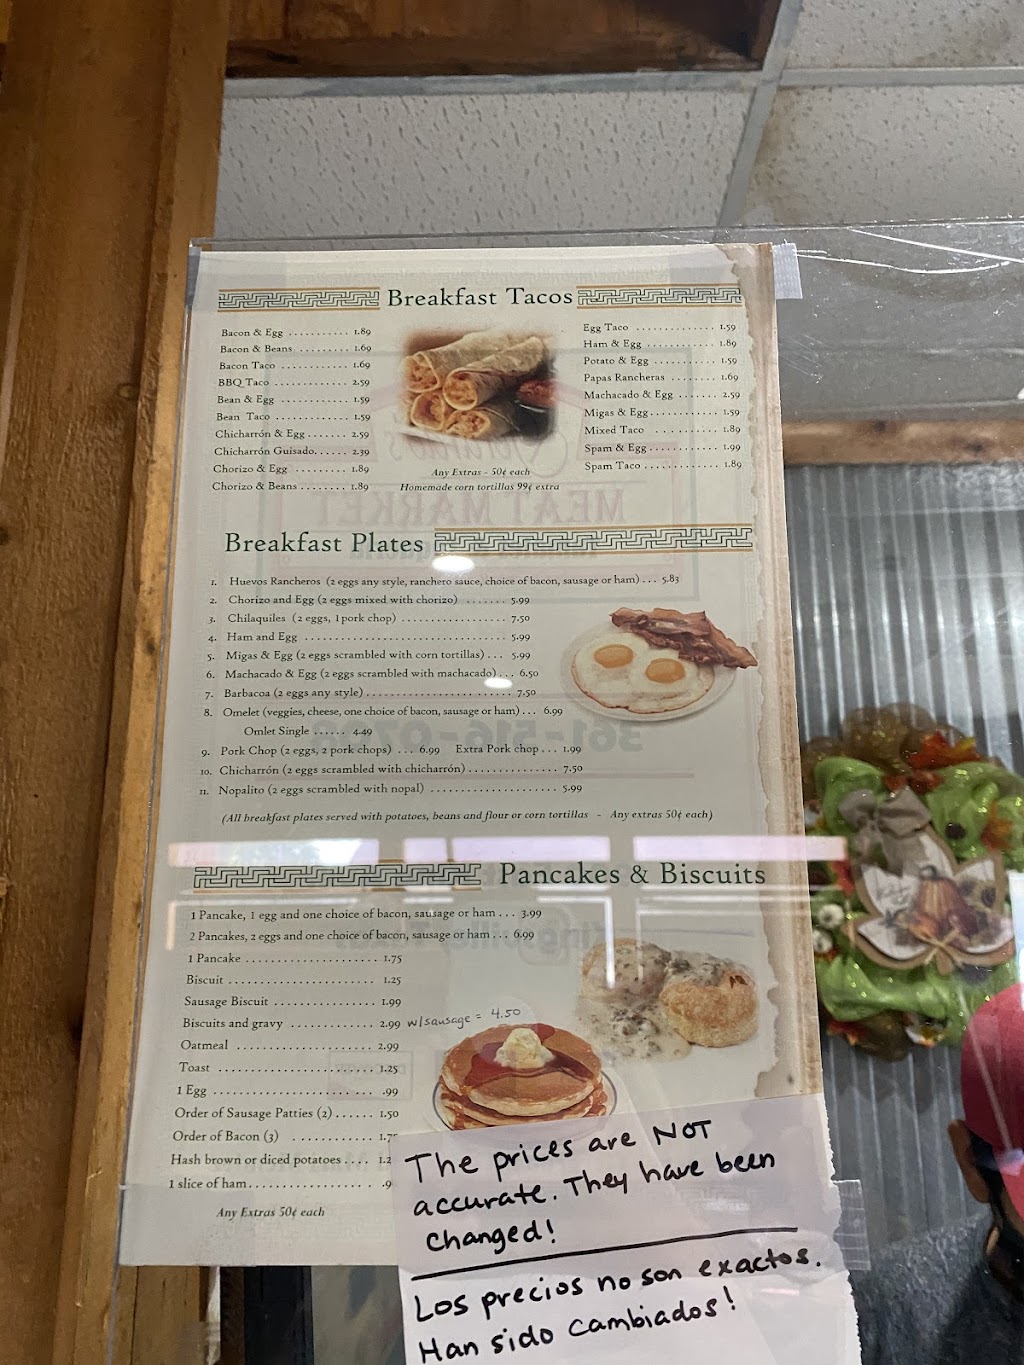 Breakfast Tacos
Bacon & Egg ........... 1.89
Bacon & Beans ......... 1.69
Bacon Taco ............ 1.69
BBQ Taco ............. 2.59
Bean & Egg ............ 1.59
Bean Taco ............ 1.59
Chicharrón & Egg ....... 2.59
Chicharrón Guisado...... 2.39
Chorizo & Egg .......... 1.89
Chorizo & Beans ........ 1.89
Egg Taco .............. 1.59
Ham & Egg ............. 1.89
Potato & Egg ........... 1.59
Papas Rancheras ........ 1.69
Machacado & Egg ....... 2.59
Migas & Egg............ 1.59
Mixed Taco .......... 1.89
Spam & Egg............ 1.99
Spam Taco ............. 1.89
Any Extras - 50¢ each
Homemade corn tortillas 99¢ extra
MEAT MARKET
Breakfast Plates
1. Huevos Rancheros (2 eggs any style, ranchero sauce, choice of bacon, sausage or ham) ... 5.83
2. Chorizo and Egg (2 eggs mixed with chorizo) ....... 5.99
3. Chilaquiles (2 eggs, 1 pork chop) .................. 7.50
4. Ham and Egg .................................. 5.99
5. Migas & Egg (2 eggs scrambled with corn tortillas) ... 5.99
6. Machacado & Egg (2 eggs scrambled with machacado) ... 6.50
7. Barbacoa (2 eggs any style) ......................... 7.50
8. Omelet (veggies, cheese, one choice of bacon, sausage or ham) ... 6.99
Omlet Single ...... 4.49
9. Pork Chop (2 eggs, 2 pork chops) ... 6.99 Extra Pork chop ... 1.99
10. Chicharrón (2 eggs scrambled with chicharrón) ............... 7.50
11. Nopalito (2 eggs scrambled with nopal) ..................... 5.99
(All breakfast plates served with potatoes, beans and flour or corn tortillas - Any extras 50¢ each)
Pancakes & Biscuits
1 Pancake, 1 egg and one choice of bacon, sausage or ham ... 3.99
2 Pancakes, 2 eggs and one choice of bacon, sausage or ham ... 6.99
1 Pancake ..................... 1.75
Biscuit ........................ 1.25
Sausage Biscuit ................ 1.99
Biscuits and gravy ............. 2.99 w/sausage = 4.50
Oatmeal ..................... 2.99
Toast ......................... 1.25
1 Egg ......................... .99
Order of Sausage Patties (2) ...... 1.50
Order of Bacon (3) ............ 1.75
Hash brown or diced potatoes .... 1.2
1 slice of ham ................... .9
Any Extras 50¢ each
The prices are NOT
accurate. They have been
changed!
Los precios no son exactos.
Han sido cambiados!